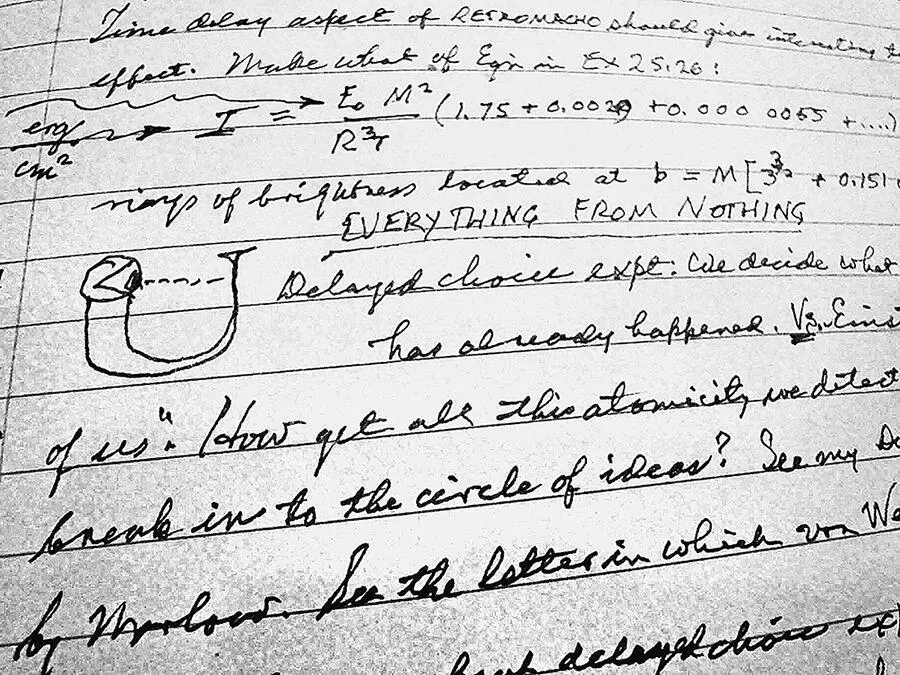 Time delay aspect of RETROMACHO should give interesting
effect. Make what of Eqn in Ex 25.26:
erg/cm² → I = E₀ M²/R³ (1.75 + 0.0029 + 0.000 0055 + ....)
rings of brightness located at b = M [ + 0.151
EVERYTHING FROM NOTHING
Delayed choice expt: We decide what
has already happened. Vs. Eins
of us". How get all this atomicity we detect
break in to the circle of ideas? See my
by Marlow. See the letter in which von We
delayed choice ex